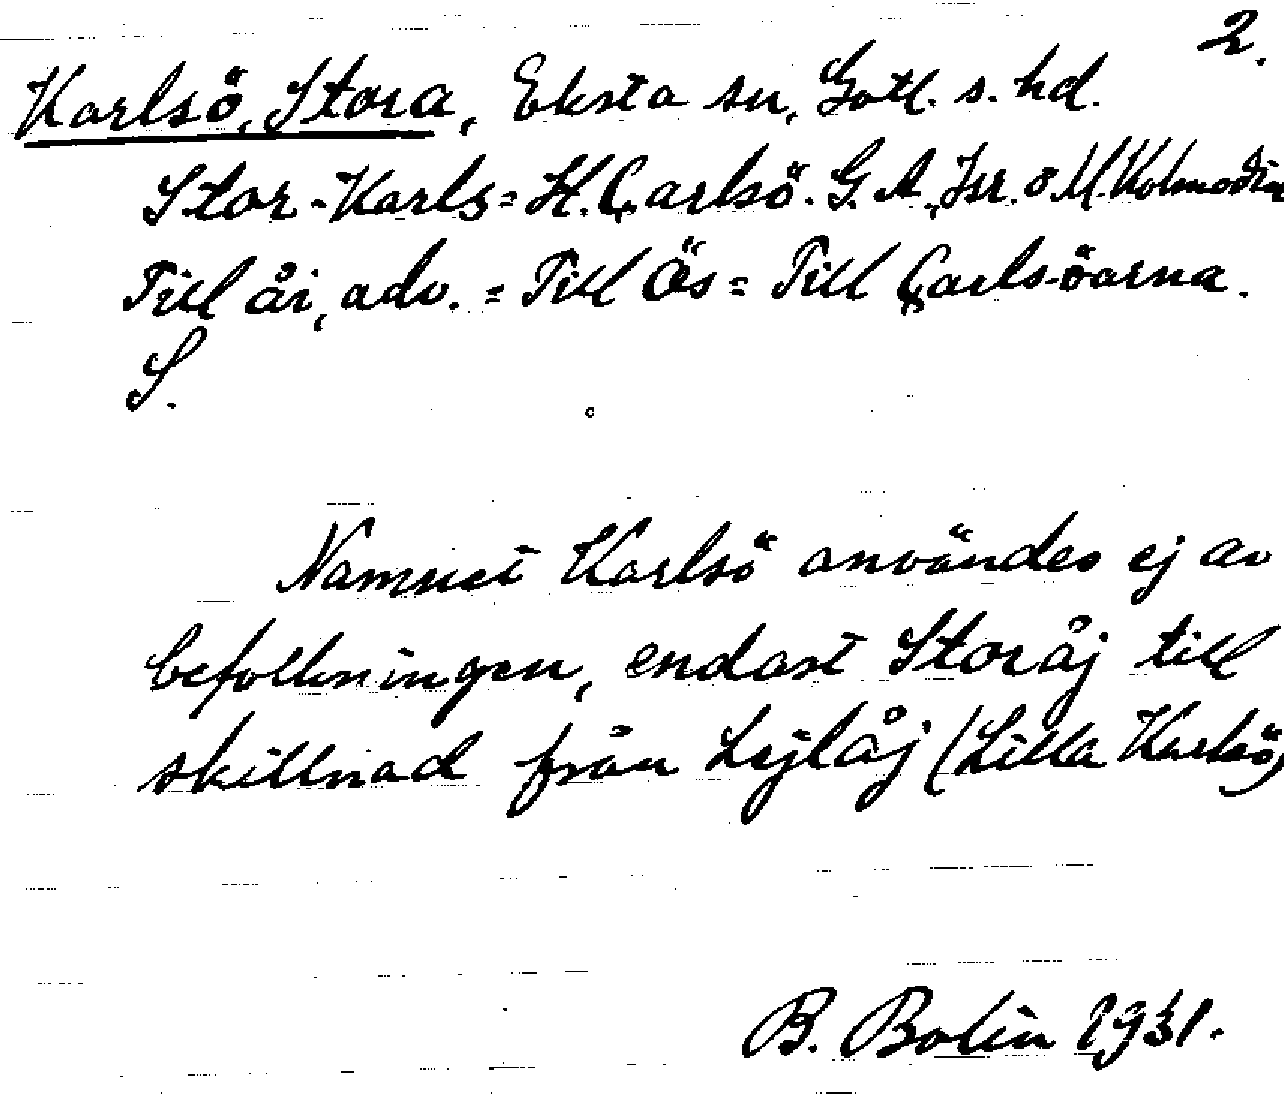 2.
Karlsö, Stora, Eksta sn, Gotl. s. hd.
Stor-Karls = H. Carlsö. G. A., Isr. o M. Kolmodin
Till åi, adv. = Till Ös = Till Carls-öarna.
S.
Namnet Karlsö användes ej av
befolkningen, endast Storåj till
skillnad från Lijlåj (Lilla Karlsö)
B. Bolin 1931.